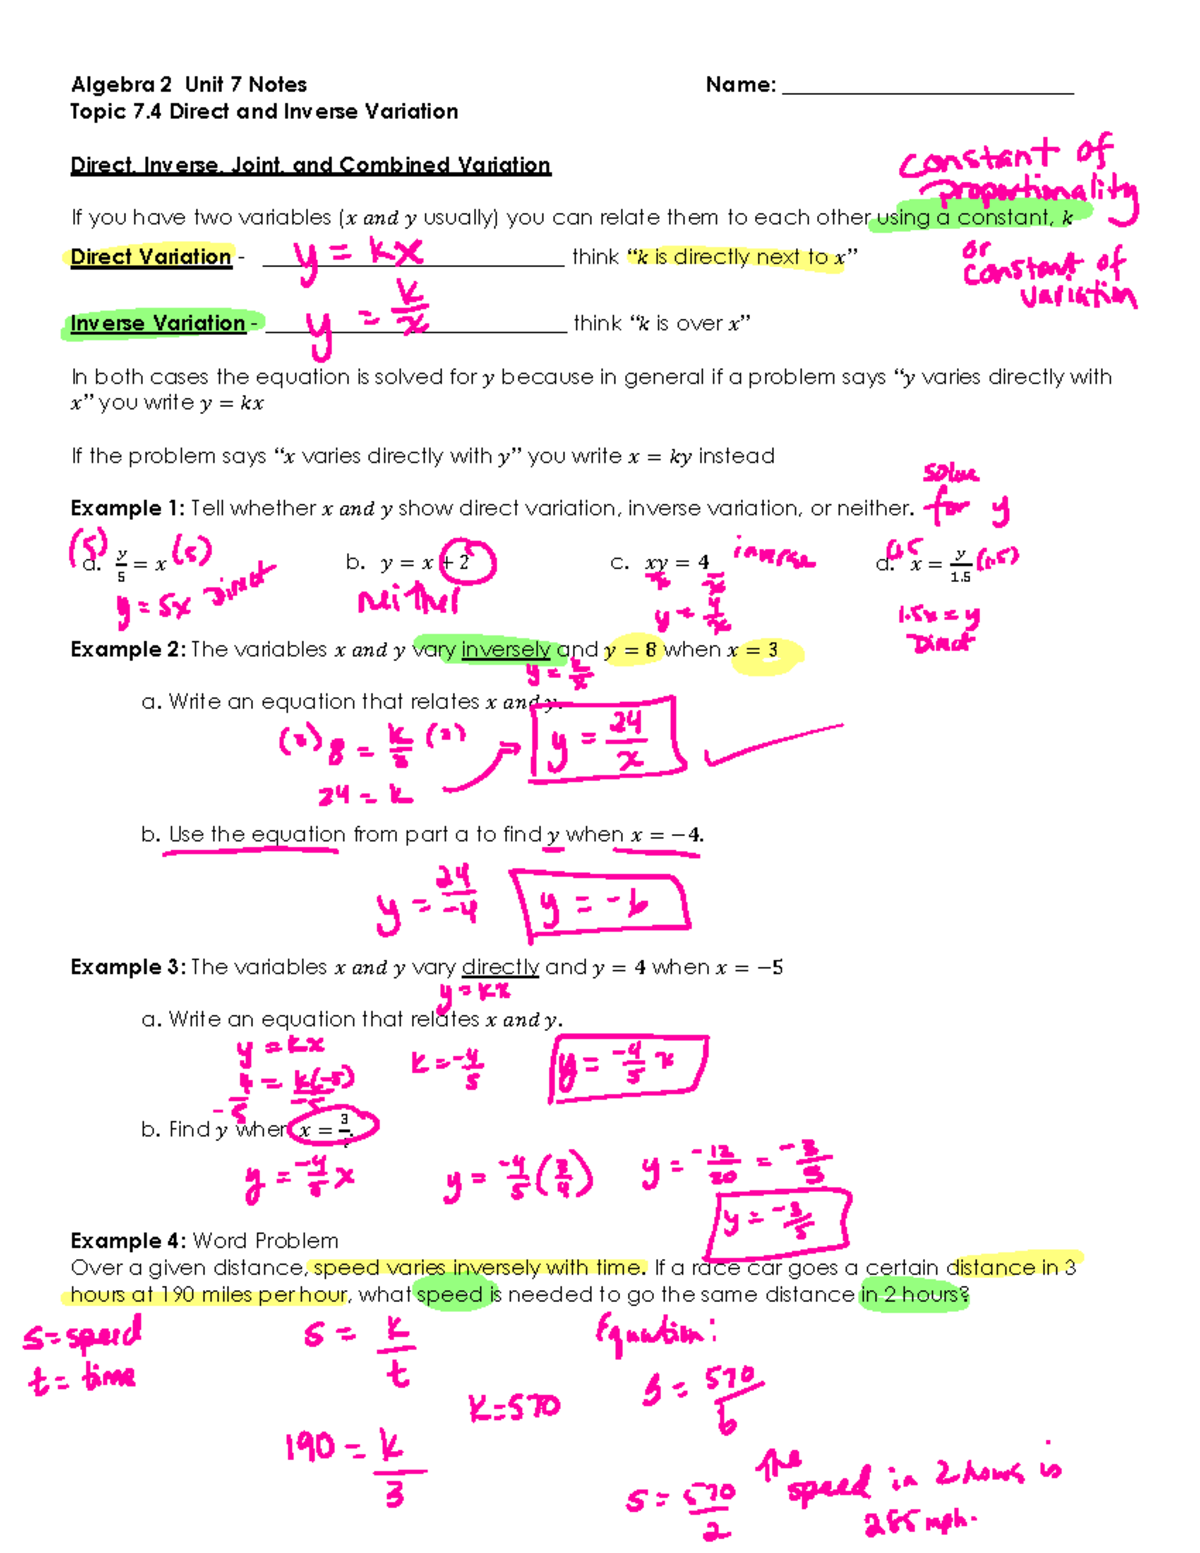 Algebra 2 Unit 7 Notes Name: ____________________
Topic 7.4 Direct and Inverse Variation
Direct, Inverse, Joint, and Combined Variation
constant of
proportionality
If you have two variables (x and y usually) you can relate them to each other using a constant, k
or
constant of
variation
Direct Variation - y = kx think “k is directly next to x”
Inverse Variation - y = k/x think “k is over x”
In both cases the equation is solved for y because in general if a problem says “y varies directly with
x” you write y = kx
If the problem says “x varies directly with y” you write x = ky instead
solve
for y
Example 1: Tell whether x and y show direct variation, inverse variation, or neither.
(5) a. y/5 = x (5) b. y = x + 2 c. xy = 4 inverse d. x = y/1.5 (1.5)
y = 5x Direct neither y = 4/x 1.5x = y
Direct
Example 2: The variables x and y vary inversely and y = 8 when x = 3
y = k/x
a. Write an equation that relates x and y.
8 = k/3 y = 24/x
24 = k
b. Use the equation from part a to find y when x = −4.
y = 24/-4 y = -6
Example 3: The variables x and y vary directly and y = 4 when x = −5
y = kx
a. Write an equation that relates x and y.
y = kx k = -4/5 y = -4/5 x
4 = k(-5)
-5 -5
b. Find y when x = 3
y = -4/5 x y = -4/5 (3/4) y = -12/20 = -3/5
y = -3/5
Example 4: Word Problem
Over a given distance, speed varies inversely with time. If a race car goes a certain distance in 3
hours at 190 miles per hour, what speed is needed to go the same distance in 2 hours?
s = speed s = k/t Equation:
t = time k = 570 s = 570/t
190 = k/3
s = 570/2 The speed in 2 hours is
285 mph.